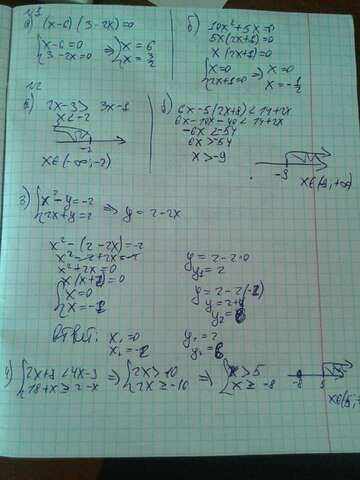 №1
а) (x-6)(3-2x)=0
{x-6=0 3-2x=0 ⇒ {x=6 x=3/2
б) 10x²+5x=0
5x(2x+1)=0
x(2x+1)=0
{x=0 2x+1=0 ⇒ x=0 x=-1/2
№2
2x-3> 3x-1
x<-2
-2
x∈(-∞,-2)
б) 6x-5(2x+8)<14+2x
6x-10x-40<14+2x
-6x<54
6x>54
x>-9
-9
x∈(-9,+∞)
3) {x²-y=-2 2x+y=2 ⇒ y=2-2x
x²-(2-2x)=-2
x²-2+2x=-2
x²+2x=0
x(x+2)=0
{x=0 x=-2
y=2-2·0
y₁=2
y=2-2(-2)
y=2+4
y₂=6
Ответ: x₁=0 y₁=2
x₂=-2 y₂=6
4) {2x+7<4x-3 18+x≥2-x ⇒ {2x>10 2x≥-16 ⇒ {x>5 x≥-8
-8 5
x∈(5,+